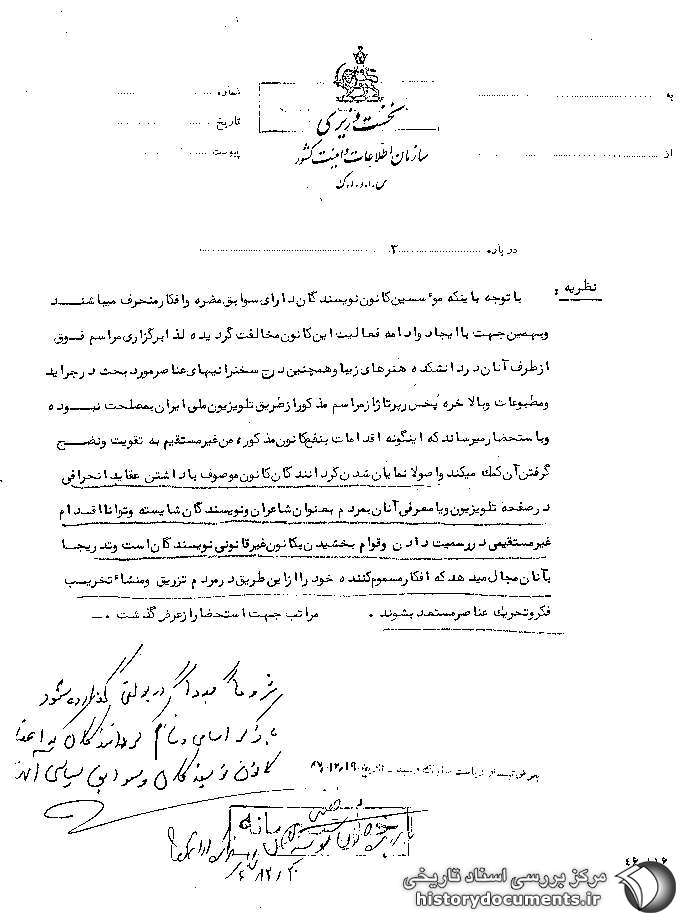 به
شماره
نخست وزیری
تاریخ
سازمان اطلاعات و امنیت کشور
از
پیوست
س.ا.و.ا.ک
درباره ۳
نظریه : با توجه باینکه موٴسسین کانون نویسندگان دارای سوابق مضره و افکار منحرف میباشند
وبهمین جهت با ایجاد و ادامه فعالیت این کانون مخالفت گردیده لذا برگزاری مراسم فوق
از طرف آنان در دانشکده هنرهای زیبا و همچنین درج سخنرانیهای عناصر مورد بحث در جراید
و مطبوعات و بالاخره پخش رپرتاژ از مراسم مذکور از طریق تلویزیون ملی ایران بمصلحت نبوده
و باستحضار میرساند که اینگونه اقدامات بنفع کانون مذکور، من غیر مستقیم به تقویت و نضج
گرفتن آن کمک میکند و اصولا نمایان شدن گردانندگان کانون موصوف با داشتن عقاید انحرافی
در صفحه تلویزیون و یا معرفی آنان بمردم بعنوان شاعران و نویسندگان شایسته و توانا اقدام
غیر مستقیمی در رسمیت دادن و قوام بخشیدن بکانون غیر قانونی نویسندگان است و تدریجا
بآنان مجال میدهد که افکار مسموم کننده خود را از این طریق در مردم تزریق و منشاٴ تخریب
فکر و تحریک عناصر مستعد بشوند . مراتب جهت استحضار از عرض گذشت .
در بولتن گذارده شود
با ذکر اسامی گردانندگان
کانون نویسندگان و سوابق سیاسی آنها
مرکز بررسی اسناد تاریخی
historydocuments.ir